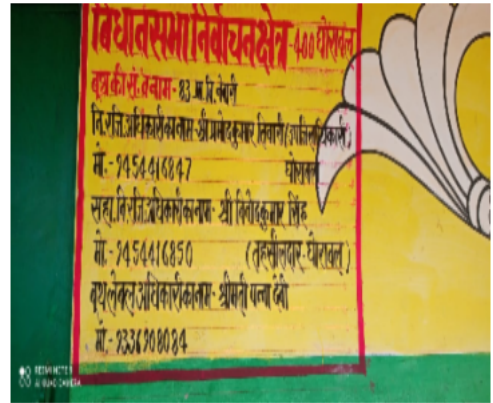 विधानसभा निर्वाचन क्षेत्र - 400 घोरावल
बूथ की सं. व नाम - 83 प्रा.वि. नेवारी
नि.रजि. अधिकारी का नाम - श्री प्रमोद कुमार तिवारी (उपजिलाधिकारी)
मो.- 9454416847 घोरावल
सहा. नि.रजि. अधिकारी का नाम - श्री विनोद कुमार सिंह
मो.- 9454416850 (तहसीलदार - घोरावल)
बूथ लेवल अधिकारी का नाम - श्रीमती पन्ना देवी
मो.- 9336908084
REDMI NOTE
AI QUAD CAMERA